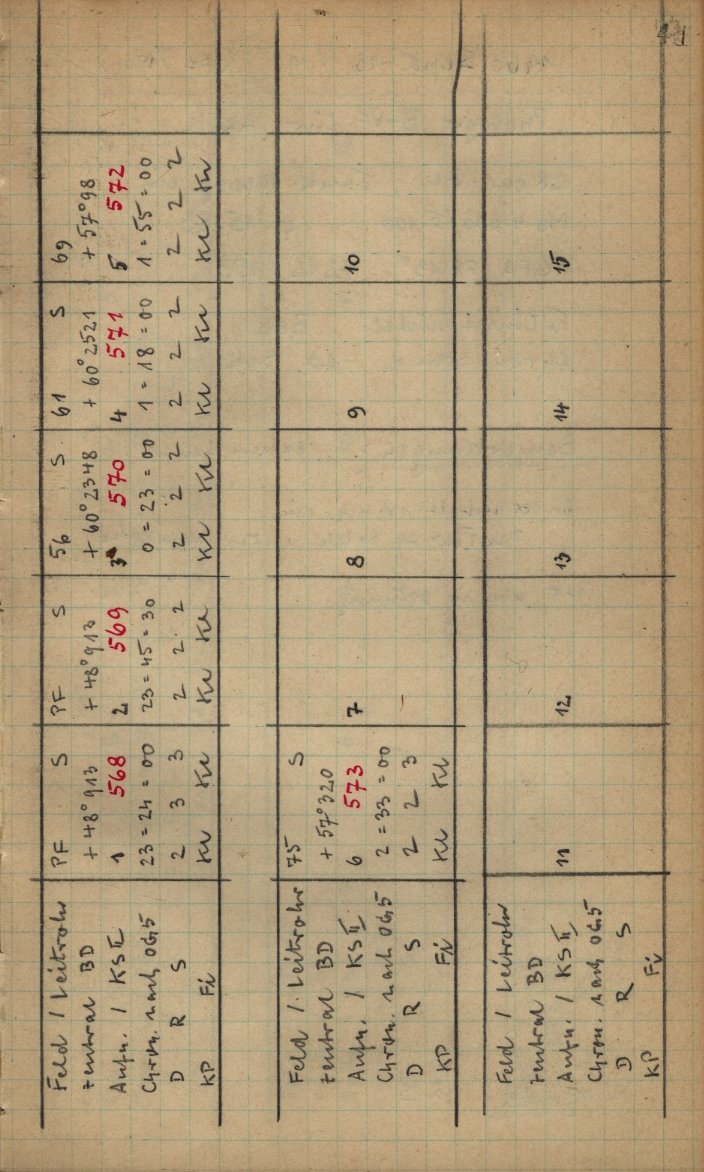 Feld / Leitrohr PF S PF S 56 S 61 S 69
Zentral BD + 48° 913 + 48° 913 + 60° 2348 + 60° 2521 + 57° 98
Aufn. / KS II 1 568 2 569 3 570 4 571 5 572
Chron. nach 06,5 23 = 24 = 00 23 = 45 = 30 0 = 23 = 00 1 = 18 = 00 1 = 55 = 00
D R S 2 3 3 2 2 2 2 2 2 2 2 2 2 2 2
KP Fi Ku Ku Ku Ku Ku Ku Ku Ku Ku Ku
Feld / Leitrohr 75 S
Zentral BD + 57° 320
Aufn. / KS II 6 573 7 8 9 10
Chron. nach 06,5 2 = 33 = 00
D R S 2 2 3
KP Fi Ku Ku
Feld / Leitrohr
Zentral BD
Aufn. / KS II 11 12 13 14 15
Chron. nach 06,5
D R S
KP Fi